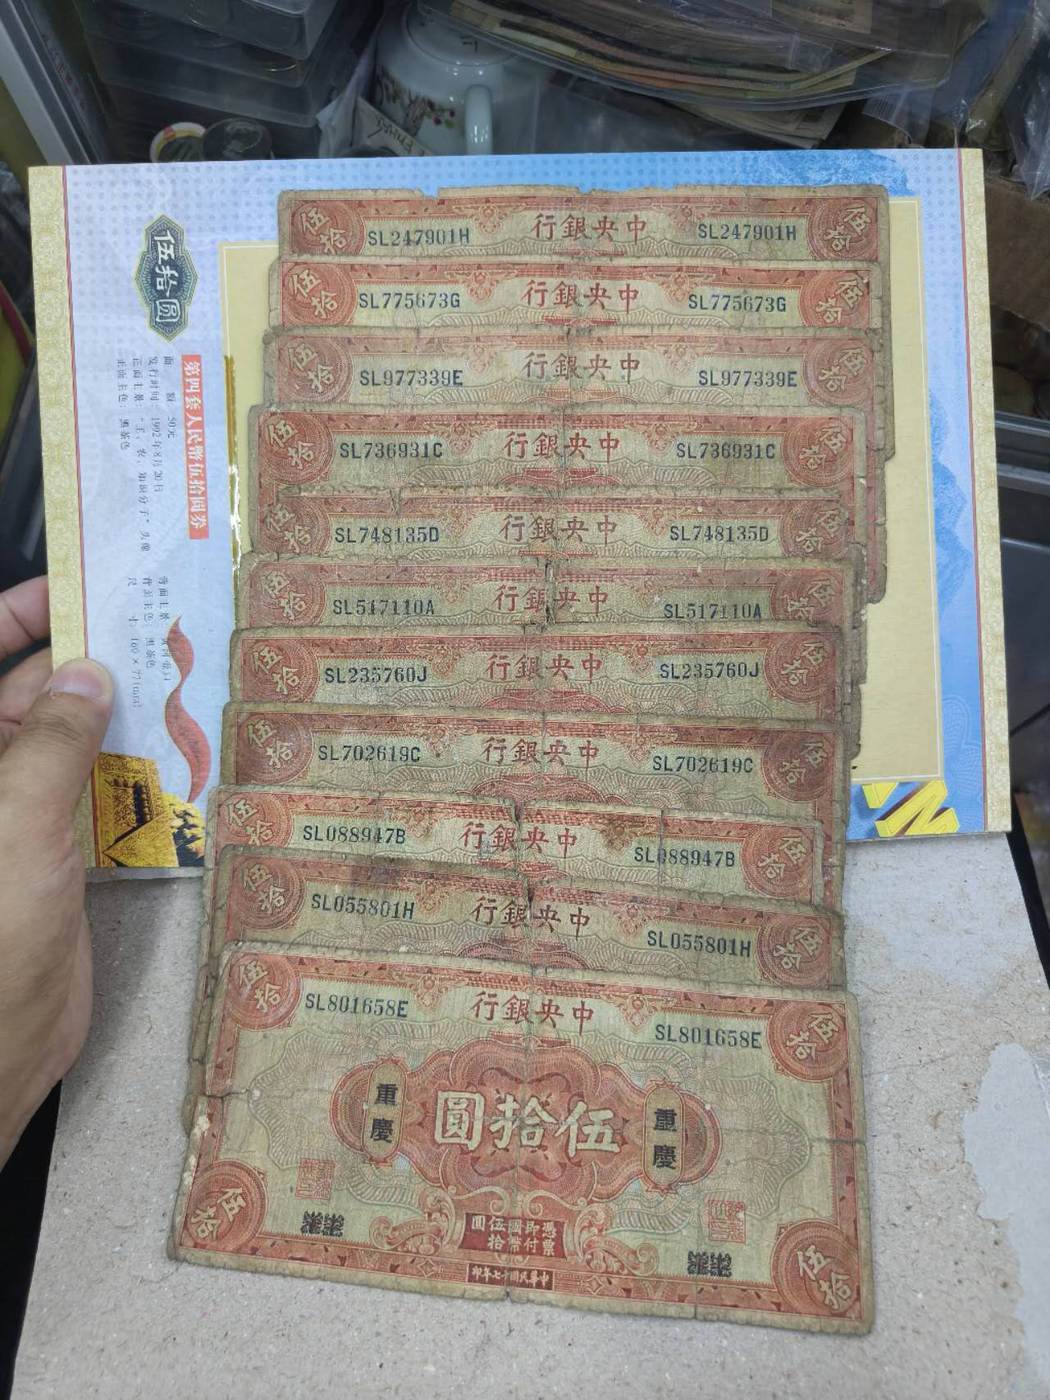 伍拾圆
第四套人民幣伍拾圓券
面 额：50元
发行时间：1992年8月20日
正面主景："工、农、知识分子"头像
正面主色：黑茶色
背面主色：黑茶色
尺 寸：160×77(mm)
伍拾 SL247901H 行銀央中 SL247901H 伍拾
伍拾 SL775673G 行銀央中 SL775673G 伍拾
伍拾 SL977339E 行銀央中 SL977339E 伍拾
伍拾 SL736931C 行銀央中 SL736931C 伍拾
伍拾 SL748135D 行銀央中 SL748135D 伍拾
伍拾 SL517110A 行銀央中 SL517110A 伍拾
伍拾 SL235760J 行銀央中 SL235760J 伍拾
伍拾 SL702619C 行銀央中 SL702619C 伍拾
伍拾 SL088947B 行銀央中 SL088947B 伍拾
伍拾 SL055801H 行銀央中 SL055801H 伍拾
伍拾 SL801658E 行銀央中 SL801658E 伍拾
重慶 圓拾伍 重慶
憑票即付國幣伍拾圓
伍拾 印年七十國民華中 伍拾